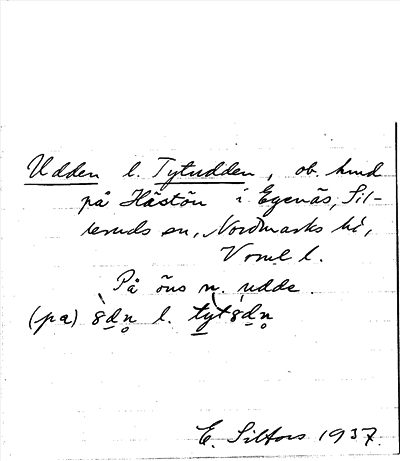 Udden l. Tytudden, ob. hmd
på Hästön i Egenäs, Sil-
leruds sn, Nordmarks hd,
Vrml l.
På öns n. udde.
(pa) 8dn l. tyt8dn
E. Silfors 1937.